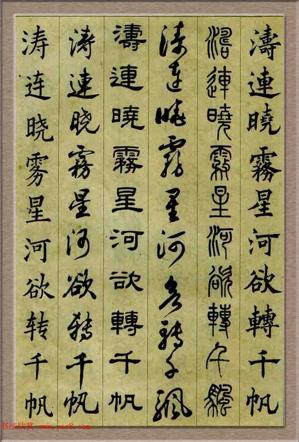 濤連曉霧星河欲轉千帆
濤連曉霧星河欲轉千帆
濤連曉霧星河欲轉千帆
濤連曉霧星河欲轉千帆
濤連曉霧星河欲轉千帆
涛连晓雾星河欲转千帆